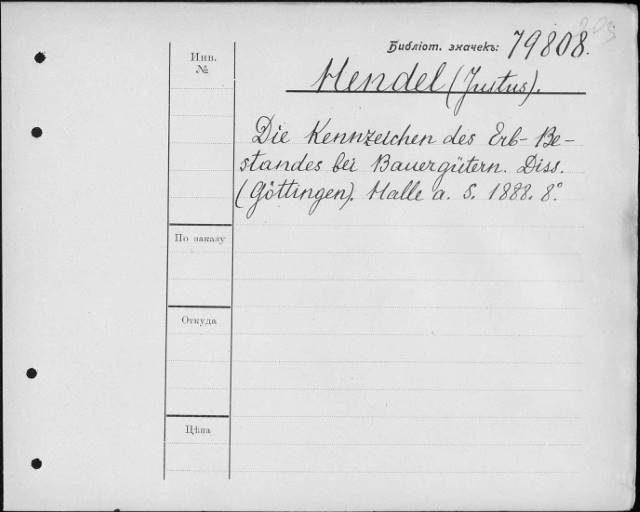 Библіот. значекъ: 79808.
Инв.
№
Mendel (Justus).
Die Kennzeichen des Erb-Be-
standes bei Bauergütern. Diss.
(Göttingen). Halle a. S. 1888. 8°
По заказу
Откуда
Цѣна